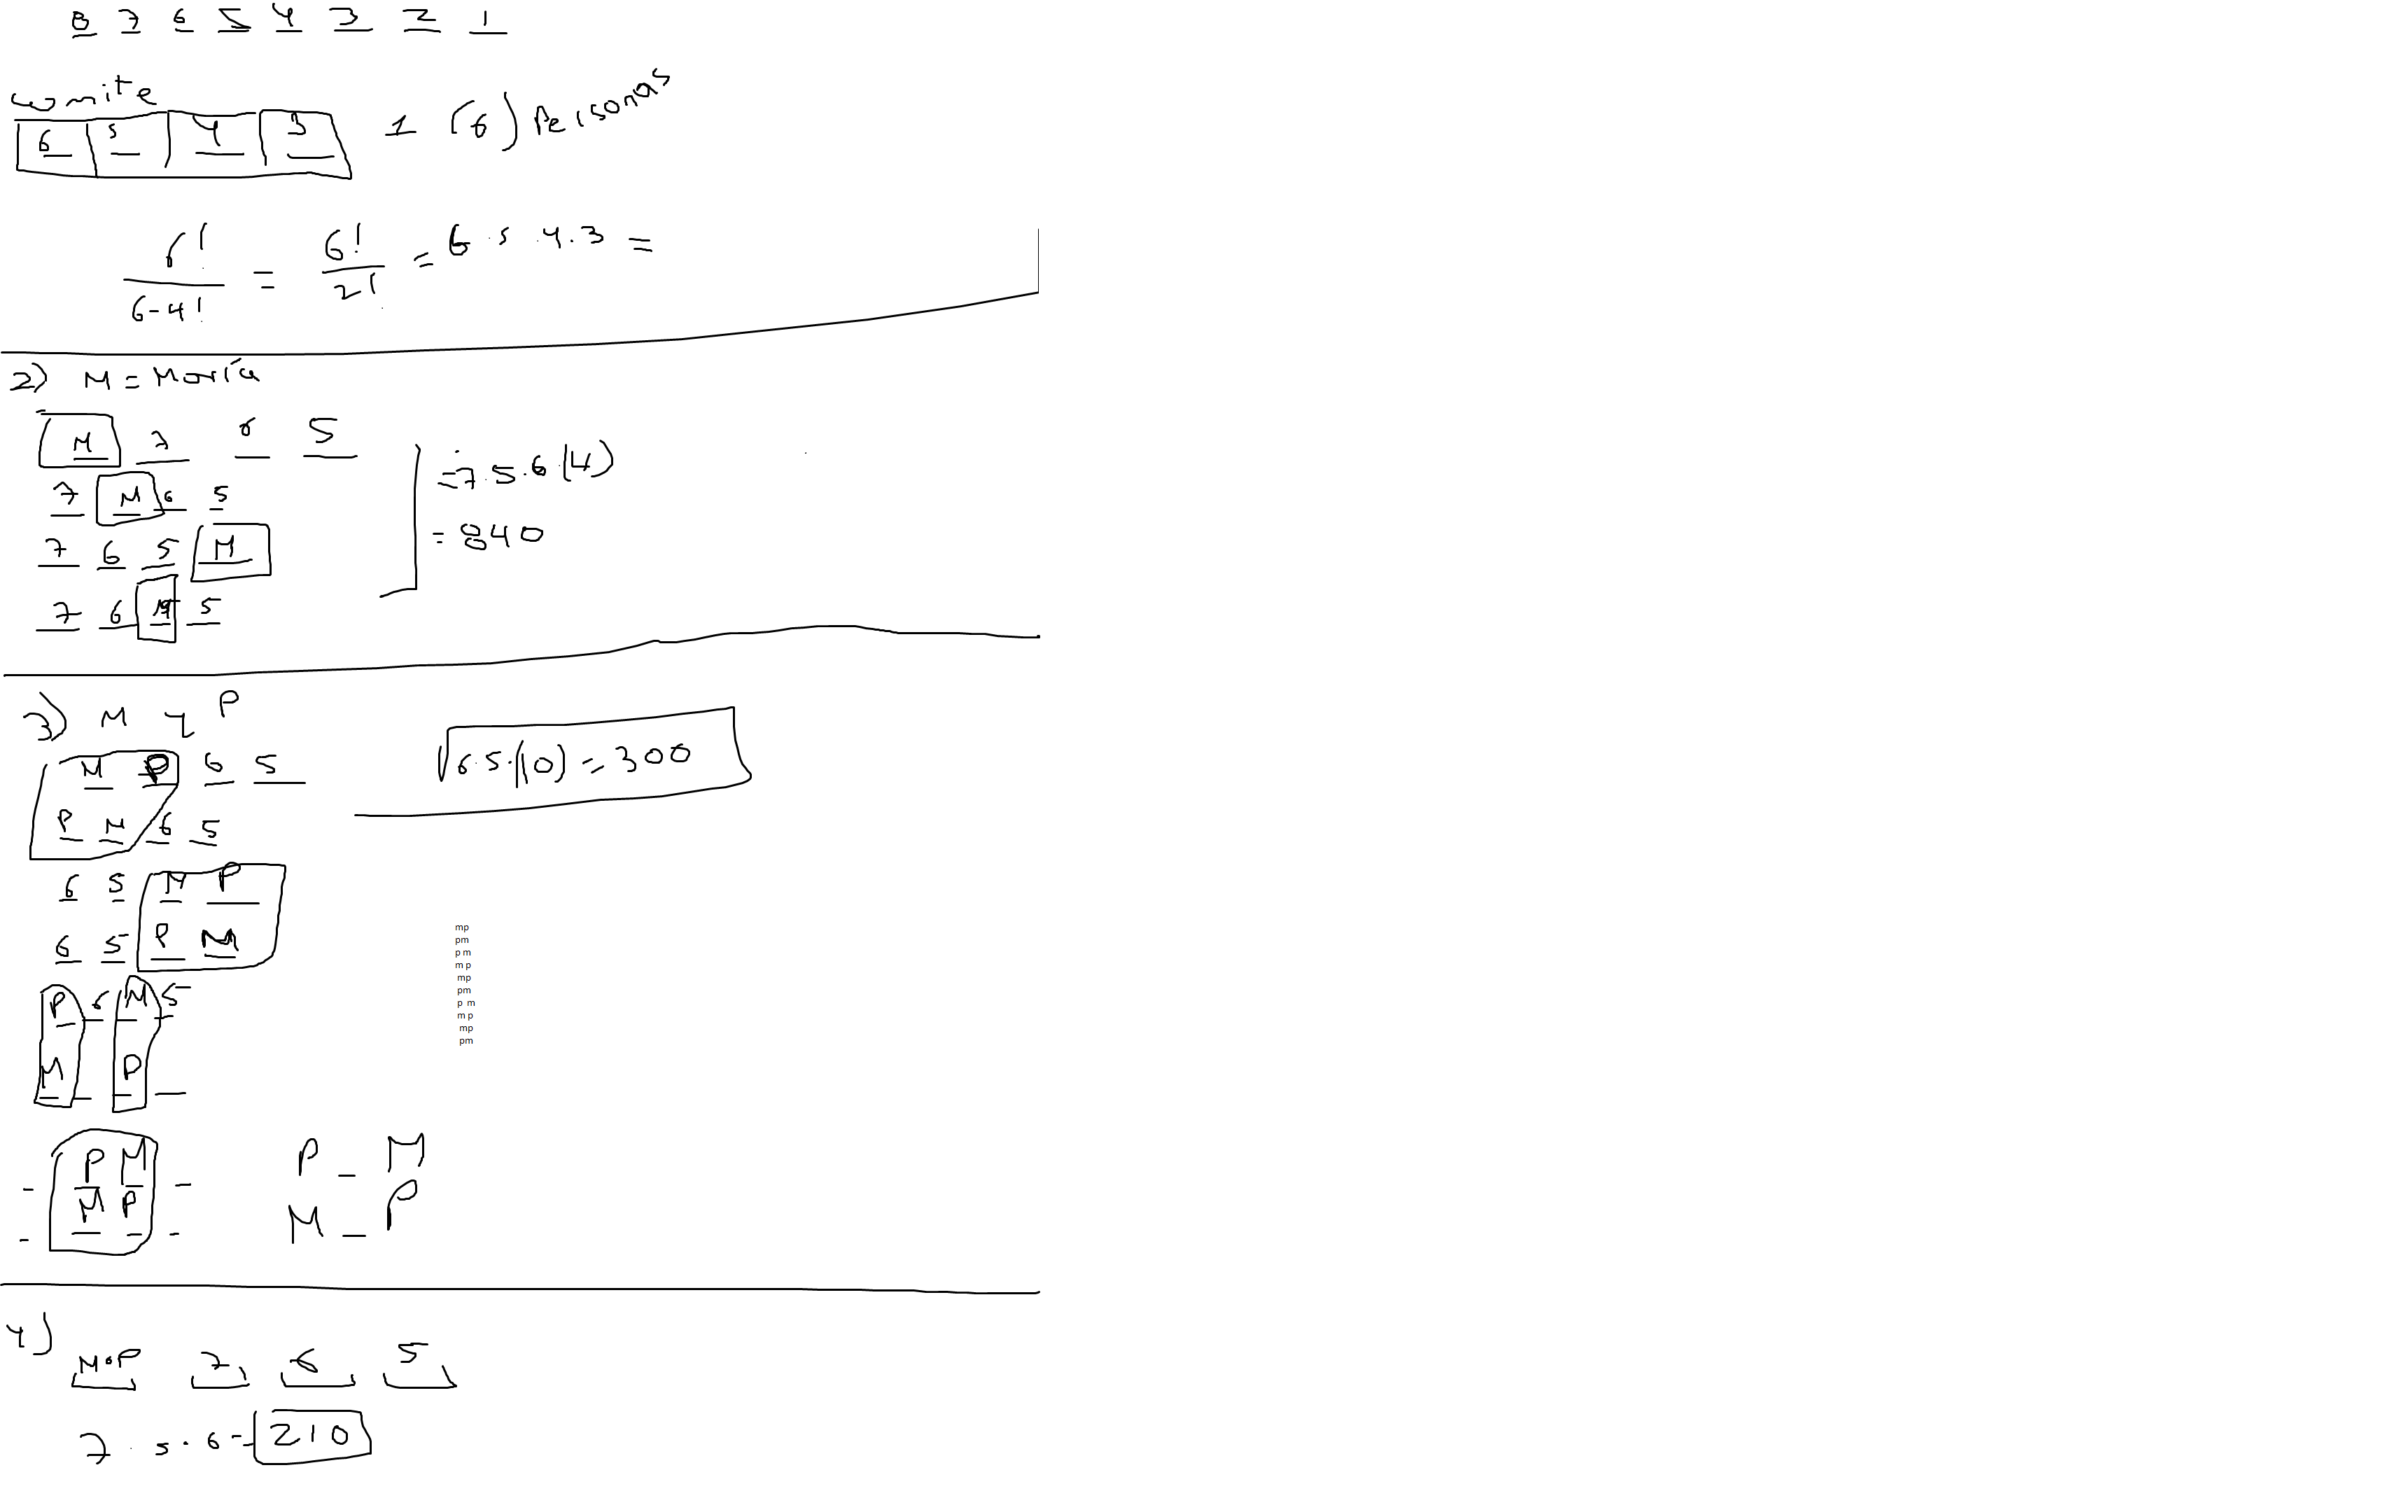 8 7 6 5 4 3 2 1
comite
6 5 4 3 1 (6) Personas
6! / 6-4! = 6! / 2! = 6 · 5 · 4 · 3 =
2) M = María
M 7 6 5
7 M 6 5
7 6 5 M
7 6 M 5
= 7 · 5 · 6 (4)
= 840
3) M y P
M P 6 5
P M 6 5
6 5 M P
6 5 P M
P 6 M 5
M _ P _
_ P M _
_ M P _
P _ M
M _ P
6 · 5 · (10) = 300
mp
pm
p m
m p
mp
pm
p m
m p
mp
pm
4)
M o P 7 6 5
7 · 5 · 6 = 210